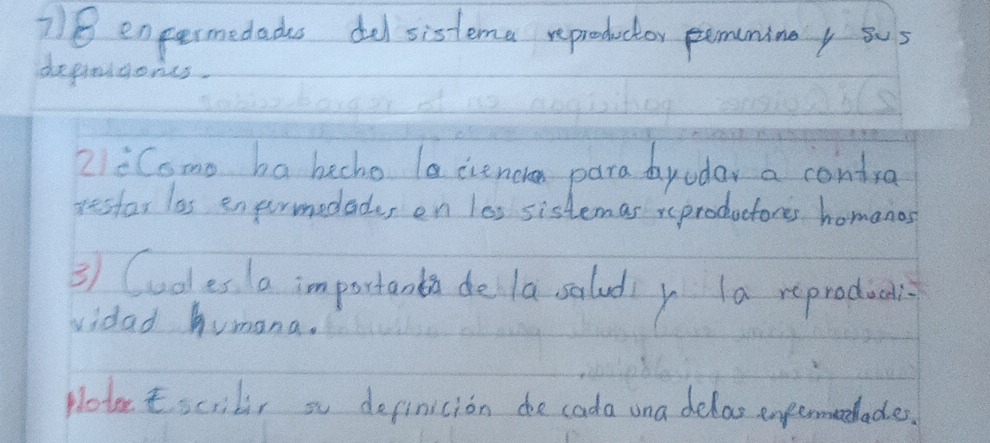 7) 8 enfermedades del sistema reproductor femenino y sus
definiciones.
2) ¿Como ha hecho la ciencia para ayudar a contra
restar las enfermedades en los sistemas reproductores homanos
3) Cual es la importanta de la salud y la reproducti-
vidad humana.
Nota Escribir su definición de cada una delas enfermedades.